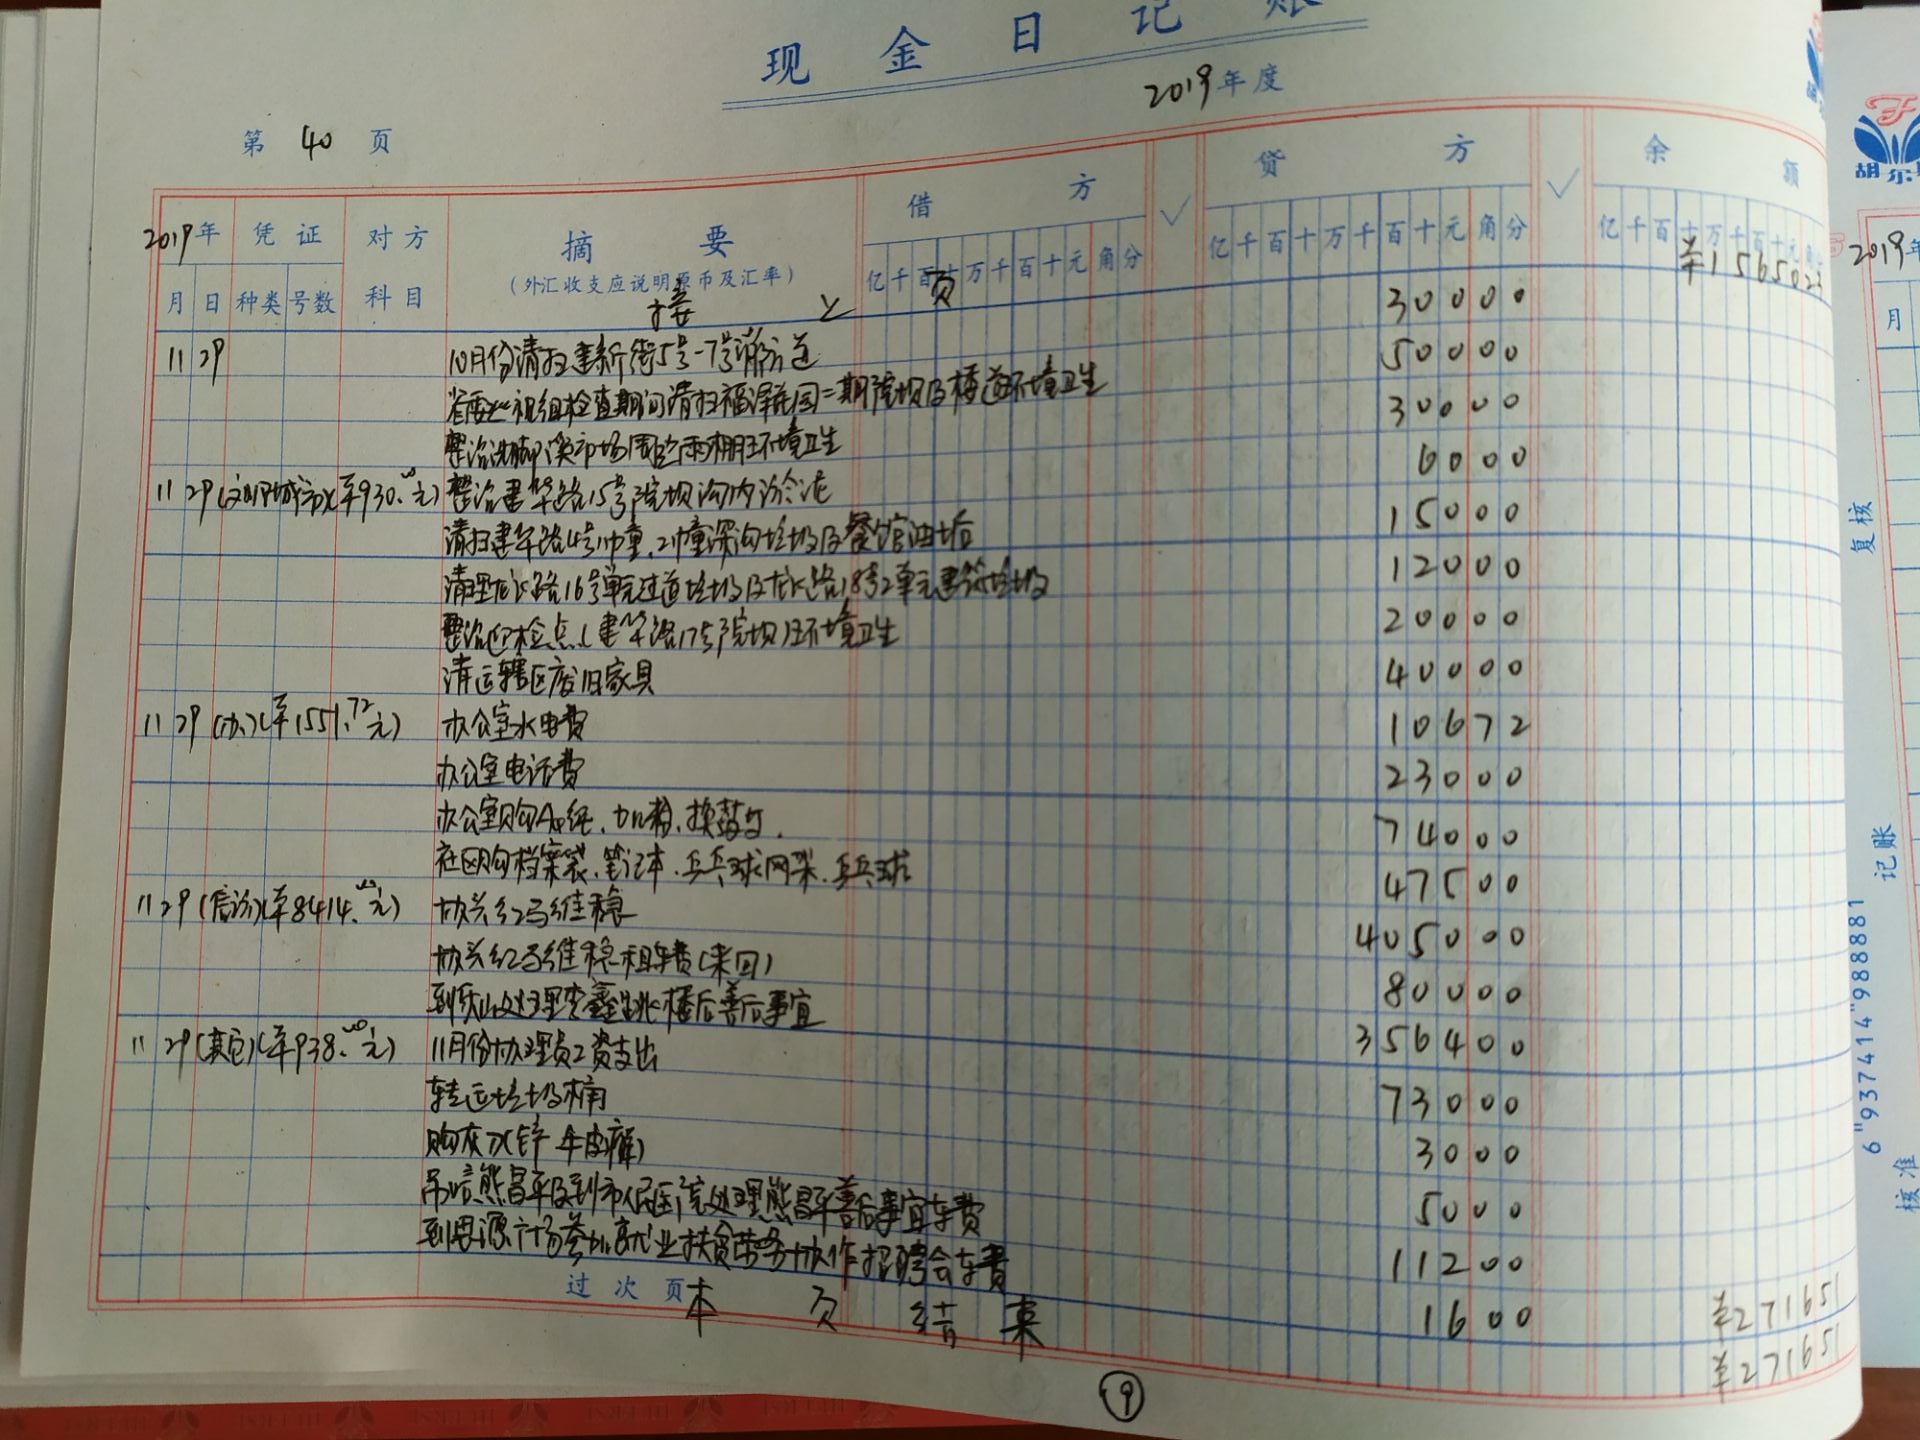 现金日记账
2019年度
第 40 页
2019年 凭证 对方 摘要 借方 ✓ 贷方 ✓ 余额
月 日 种类 号数 科目 (外汇收支应说明原币及汇率) 亿千百十万千百十元角分 亿千百十万千百十元角分 亿千百十万千百十元角分
接上页 ¥156502
30000
11 29 10月份清扫建新街5号-7号消防道 50000
省委巡视组检查期间清扫福泽花园二期院坝及楼道环境卫生 30000
整治洗脚溪市场周路雨棚环境卫生 6000
11 29 (文明城市)(¥930.00元) 整治建华路15号院坝沟内淤泥 15000
清扫建华路4号1幢、2幢深沟垃圾及餐馆油垢 12000
清理龙长路16号单元过道垃圾及龙长路18号2单元建筑垃圾 20000
整治迎检点(建华路17号院坝)环境卫生
清运辖区废旧家具 40000
11 29 (办)(¥1551.72元) 办公室水电费 10672
办公室电话费 23000
办公室购A4纸、加粉、换鼓 74000
社区购档案袋、笔记本、乒乓球网架、乒乓球 47500
11 29 (信访)(¥8414.00元) 协兴红马维稳 405000
协兴红马维稳租车费(来回) 80000
到处理李鑫跳楼后善后事宜 356400
11 29 (其它)(¥938.00元) 11月份协理员工资支出
转运垃圾桶 73000
购灰刀(铲牛皮癣) 3000
吊唁熊昌平及到市人民医院处理熊昌平善后事宜车费 5000
到思源广场参加就业扶贫劳务协作招聘会车费 11200
过次页 本页结束 1600 ¥271651
¥271651
9
复核
记账
核准
6"937414"988881
胡尔
2019年
月